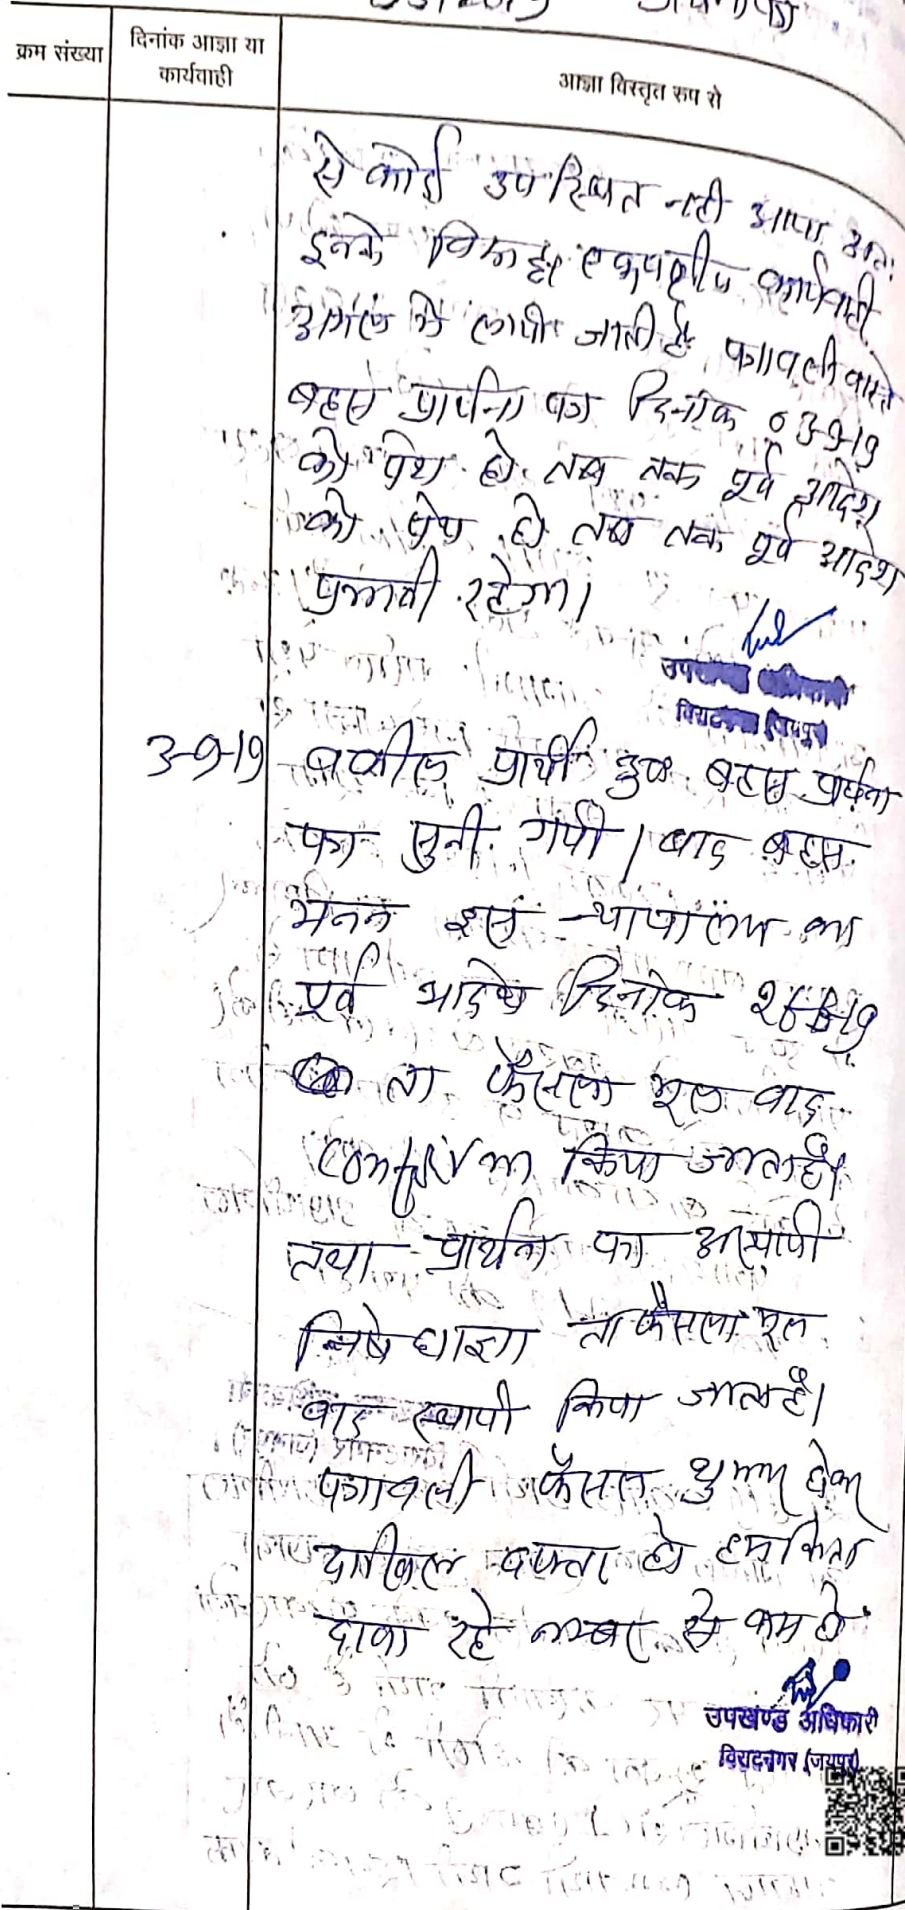 क्रम संख्या
दिनांक आज्ञा या
कार्यवाही
आज्ञा विस्तृत रुप से
से कोई उपस्थित नही आया अतः
इनके विरूद्ध एकपक्षीय कार्यवाही
अमल में लायी जाती है पत्रावली वास्ते
बहस प्रार्थना पत्र दिनांक 03-9-19
को पेश हो तब तक पूर्व आदेश
को पेश हो तब तक पूर्व आदेश
प्रभावी रहेगा।
उपखण्ड अधिकारी
विराटनगर (जयपुर)
3-9-19
वकील प्रार्थी उप० बहस प्रार्थना
पत्र सुनी गयी। बाद बहस
मनन इस न्यायालय का
पूर्व आदेश दिनांक
ता फैसला मूल वाद
Confirm किया जाता है।
तथा प्रार्थना पत्र अस्थायी
निषेधाज्ञा ता फैसला मूल
वाद स्थायी किया जाता है।
पत्रावली फैसल शुमार होकर
दाखिल दफ्तर हो हमकिता
दावा रहे नम्बर से कम हो
उपखण्ड अधिकारी
विराटनगर (जयपुर)